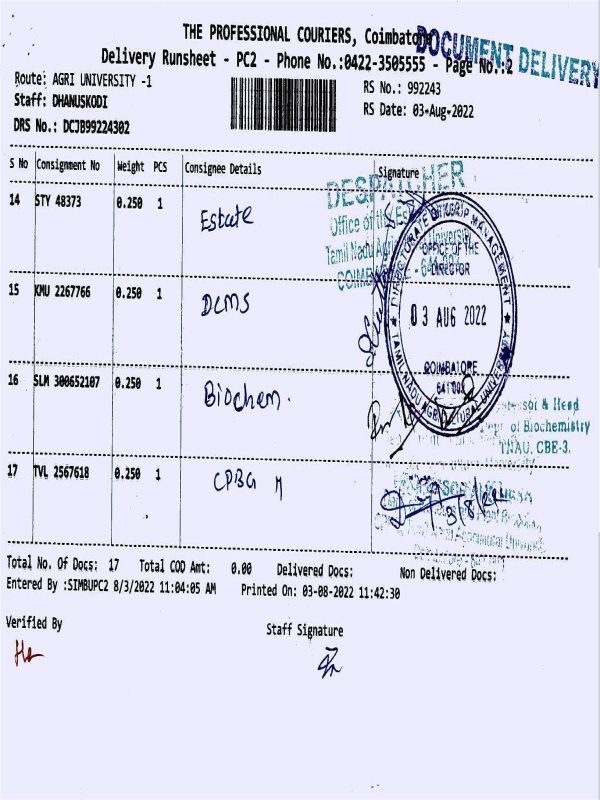 THE PROFESSIONAL COURIERS, Coimbatore
DOCUMENT DELIVERY
Delivery Runsheet - PC2 - Phone No.:0422-3505555 - Page No.:2
Route: AGRI UNIVERSITY -1
RS No.: 992243
Staff: DHANUSKODI
RS Date: 03-Aug-2022
DRS No.: DCJB99224302
S No Consignment No Weight PCS Consignee Details Signature
DESPATCHER
14 STY 48373 0.250 1 Estate
Office of the Estate Officer
Tamil Nadu Agri University
COIMBATORE - 641 003
15 KMU 2267766 0.250 1 DCMS
DIRECTORATE OF CROP MANAGEMENT
OFFICE OF THE
DIRECTOR
03 AUG 2022
COIMBATORE
641 003
TAMIL NADU AGRICULTURAL UNIVERSITY
16 SLM 300652107 0.250 1 Biochem.
Professor & Head
Dept. of Biochemistry
TNAU, CBE-3.
17 TVL 2567618 0.250 1 CPBG M
3/8/22
Total No. Of Docs: 17 Total COD Amt: 0.00 Delivered Docs: Non Delivered Docs:
Entered By :SIMBUPC2 8/3/2022 11:04:05 AM Printed On: 03-08-2022 11:42:30
Verified By
Staff Signature